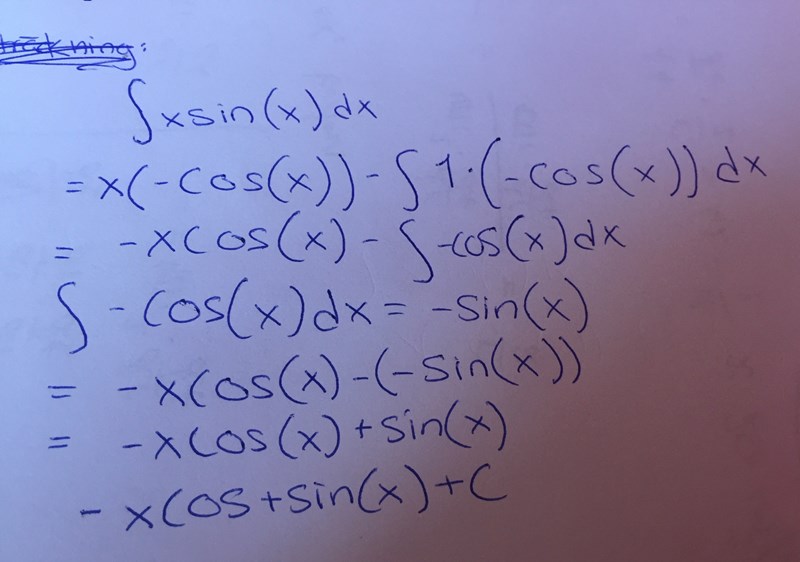 ∫ x sin(x) dx
= x(-cos(x)) - ∫ 1·(-cos(x)) dx
= -xcos(x) - ∫ -cos(x) dx
∫ -cos(x) dx = -sin(x)
= -xcos(x) -(-sin(x))
= -xcos(x) + sin(x)
- xcos + sin(x) + C